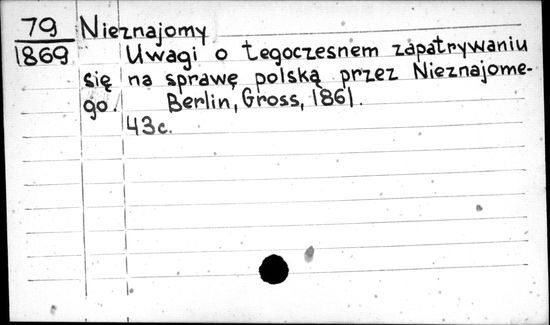 79 Nieznajomy
1869 Uwagi o tegoczesnem zapatrywaniu
się na sprawę polską przez Nieznajome-
go. Berlin, Gross, 1861.
43c.